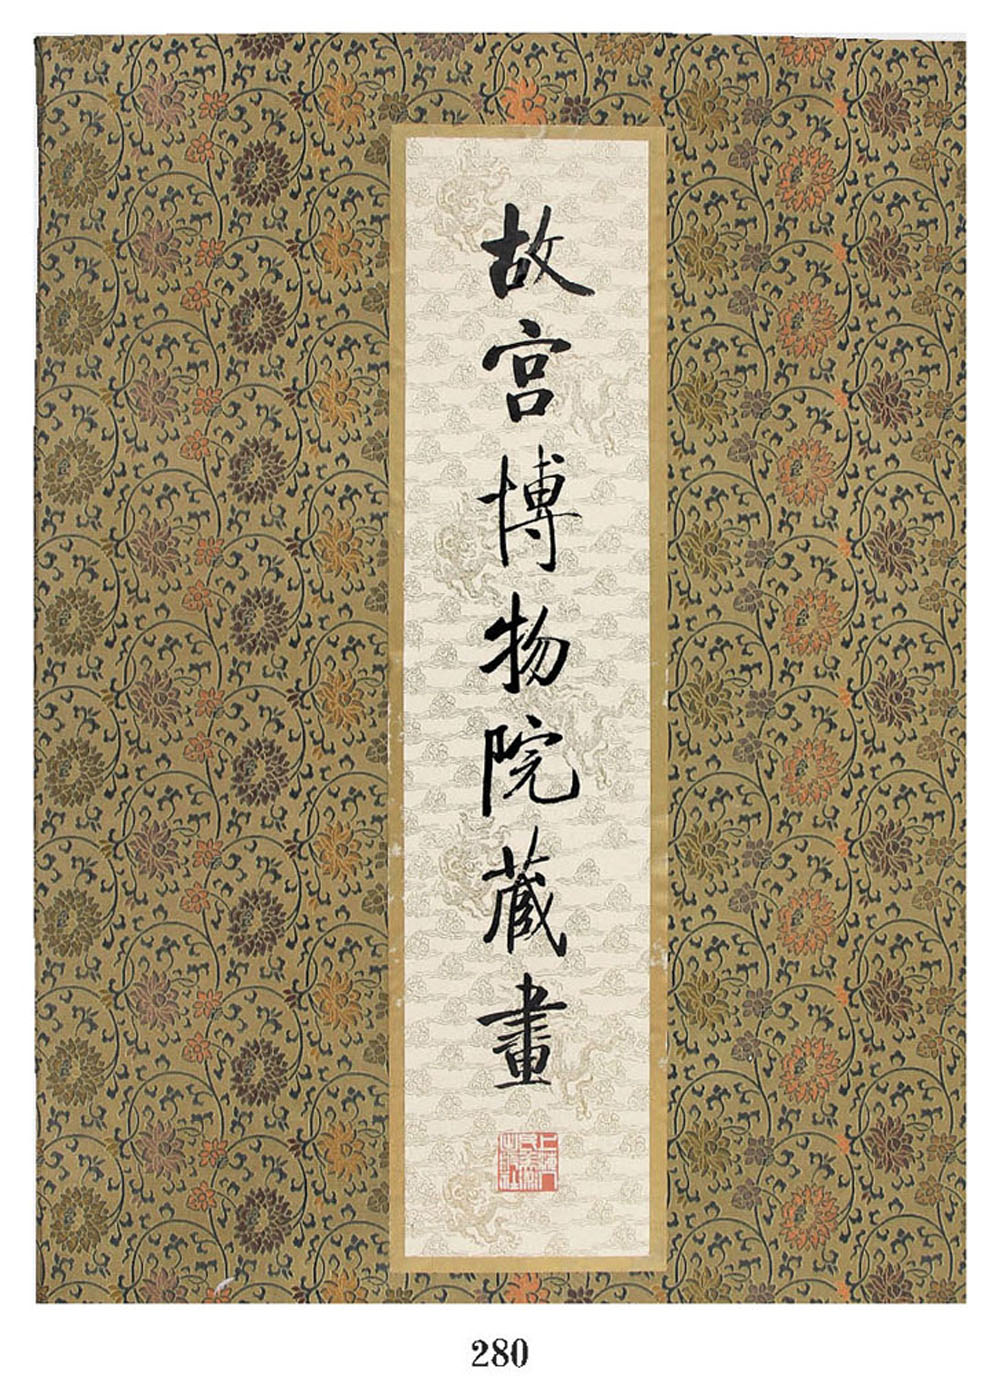 故宫博物院藏畫
280